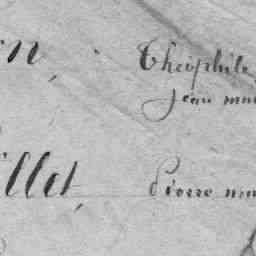 in, Théophile
Jean ma
illet, Pierre ma